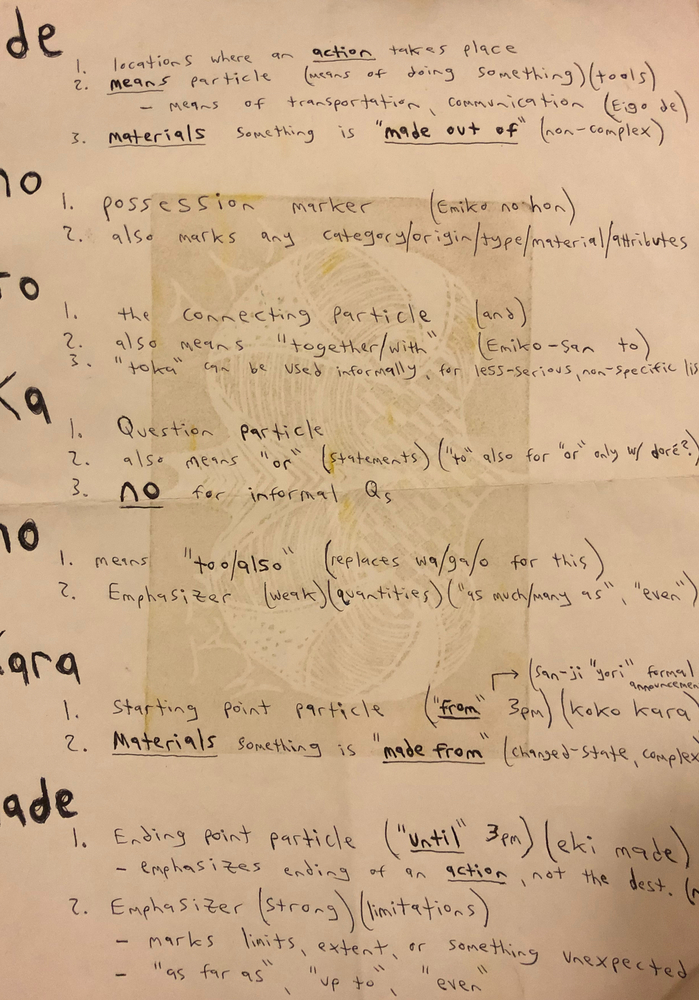 de
1. locations where an action takes place
2. means particle (means of doing something) (tools)
- means of transportation, communication (Eigo de)
3. materials something is "made out of" (non-complex)
no
1. possession marker (Emiko no hon)
2. also marks any category/origin/type/material/attributes
to
1. the connecting particle (and)
2. also means "together/with" (Emiko-San to)
3. "toka" can be used informally, for less-serious, non-specific lis
Ka
1. Question particle
2. also means "or" (statements) ("to" also for "or" only w/ doré?)
3. no for informal Qs
mo
1. means "too/also" (replaces wa/ga/o for this)
2. Emphasizer (weak) (quantities) ("as much/many as", "even")
Kara
(San-ji "yori" formal
announcemen
1. Starting point particle ("from" 3pm) (koko kara)
2. Materials something is "made from" (changed-state, complex
made
1. Ending point particle ("until" 3pm) (eki made)
- emphasizes ending of an action, not the dest. (n
2. Emphasizer (strong) (limitations)
- marks limits, extent, or something unexpected
- "as far as", "up to", "even"